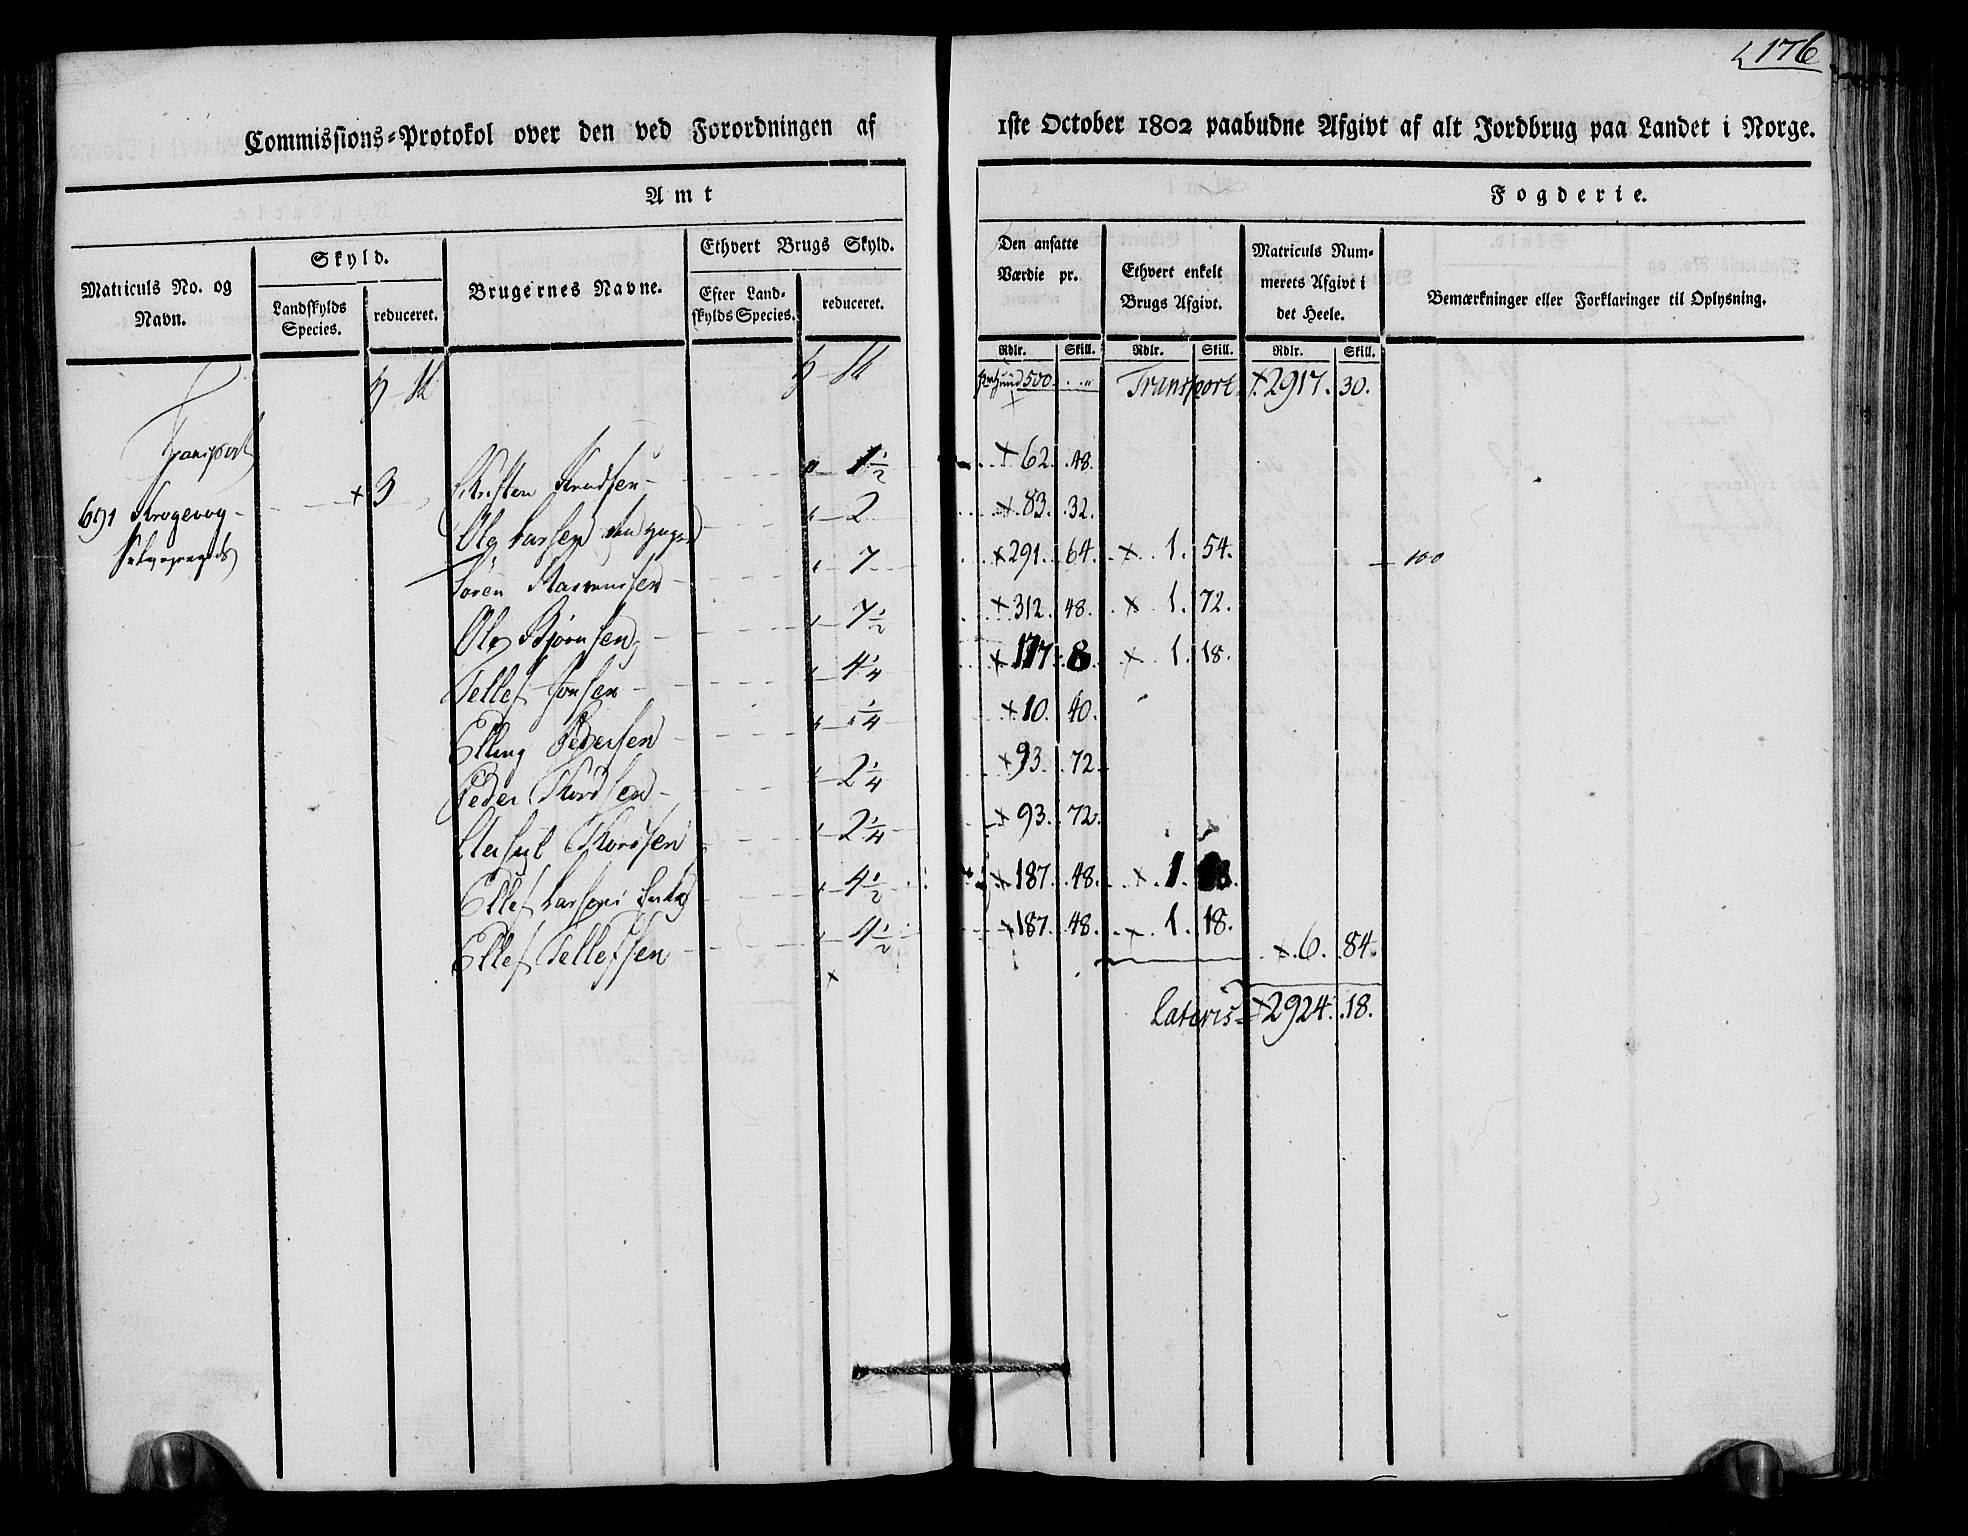 176
Commissions-Protokol over den ved Forordningen af 1ste October 1802 paabudne Afgivt af alt Jordbrug paa Landet i Norge.
Amt Fogderie.
Matriculs No. og Navn.
Skyld.
Landskylds Species.
reduceret.
Brugernes Navne.
Ethvert Brugs Skyld.
Efter Landskylds Species.
reduceret.
Den ansatte Værdie pr.
Ethvert enkelt Brugs Afgivt.
Matriculs Nummerets Afgivt i det Heele.
Bemærkninger eller Forklaringer til Oplysning.
Rdlr. Skill. Rdlr. Skill. Rdlr. Skill.
500 Transport × 2917. 30.
Transport
× 3 Christen Knudsen 1½ × 62. 48.
691 Krogevog Ole Larsen 2 × 83. 32.
Sören Rasmussen 7 × 291. 64. × 1. 54. 100
Ole Bjørnsen 7½ × 312. 48. × 1. 72.
Tellef Jonsen 4¼ × 177. 8. × 1. 18.
Elling Pedersen ¼ × 10. 40.
Peder Tordsen 2¼ × 93. 72
Tordsen 2¼ × 93. 72.
Ellef Larsen 4½ × 187. 48. × 1.
Ellef Tellefsen 4½ × 187. 48. × 1. 18.
× 6. 84.
× Lateris × 2924. 18.